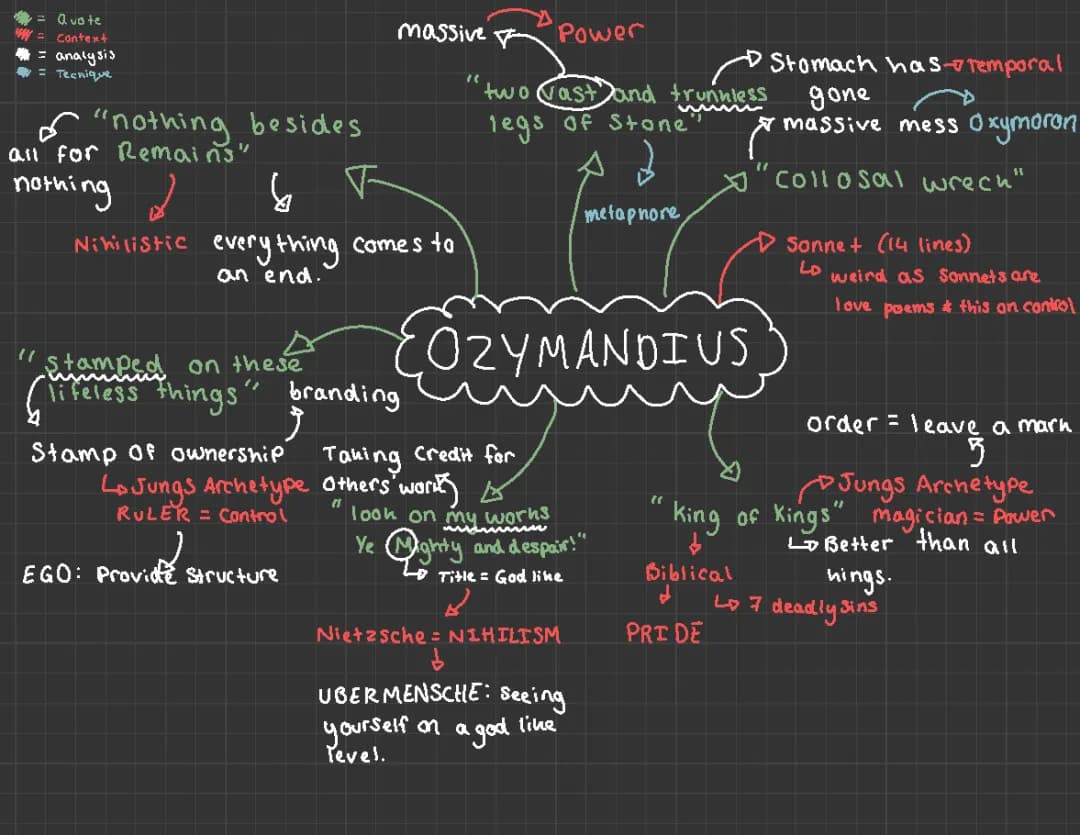 = Quote
= Context
= analysis
= Tecnique
massive
Power
"two vast and trunkless
legs of Stone"
metaphore
Stomach has
gone
Temporal
massive mess
Oxymoron
"Collosal wreck"
"nothing besides
Remains"
all for
nothing
Nihilistic
everything comes to
an end.
Sonnet (14 lines)
weird as Sonnets are
love poems & this on control
OZYMANDIUS
"Stamped on these
lifeless things"
branding
Stamp Of ownership
Jungs Archetype
RULER = Control
EGO: Provide Structure
Taking Credit for
Others' work
"look on my works
Ye Mighty and despair!"
Title = God like
Nietzsche = NIHILISM
UBERMENSCHE: Seeing
yourself on a god like
level.
order = leave a mark
Jungs Archetype
Magician = Power
"King of Kings"
Better than all
hings.
Biblical
7 deadly sins
PRIDE